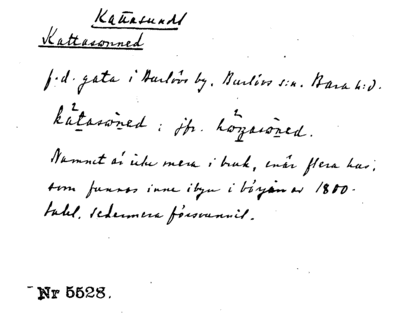 Kattasundt
Kattasonned
f.d. gata i Burlövs by, Burlövs s:n. Bara h:d.
kat̲asön̲ed ; jfr. högasön̲ed.
Namnet är icke mera i bruk, enär flera hus,
som funnos inne i byn i början av 1800-
talet, sedermera försvunnit.
Nr 5528.